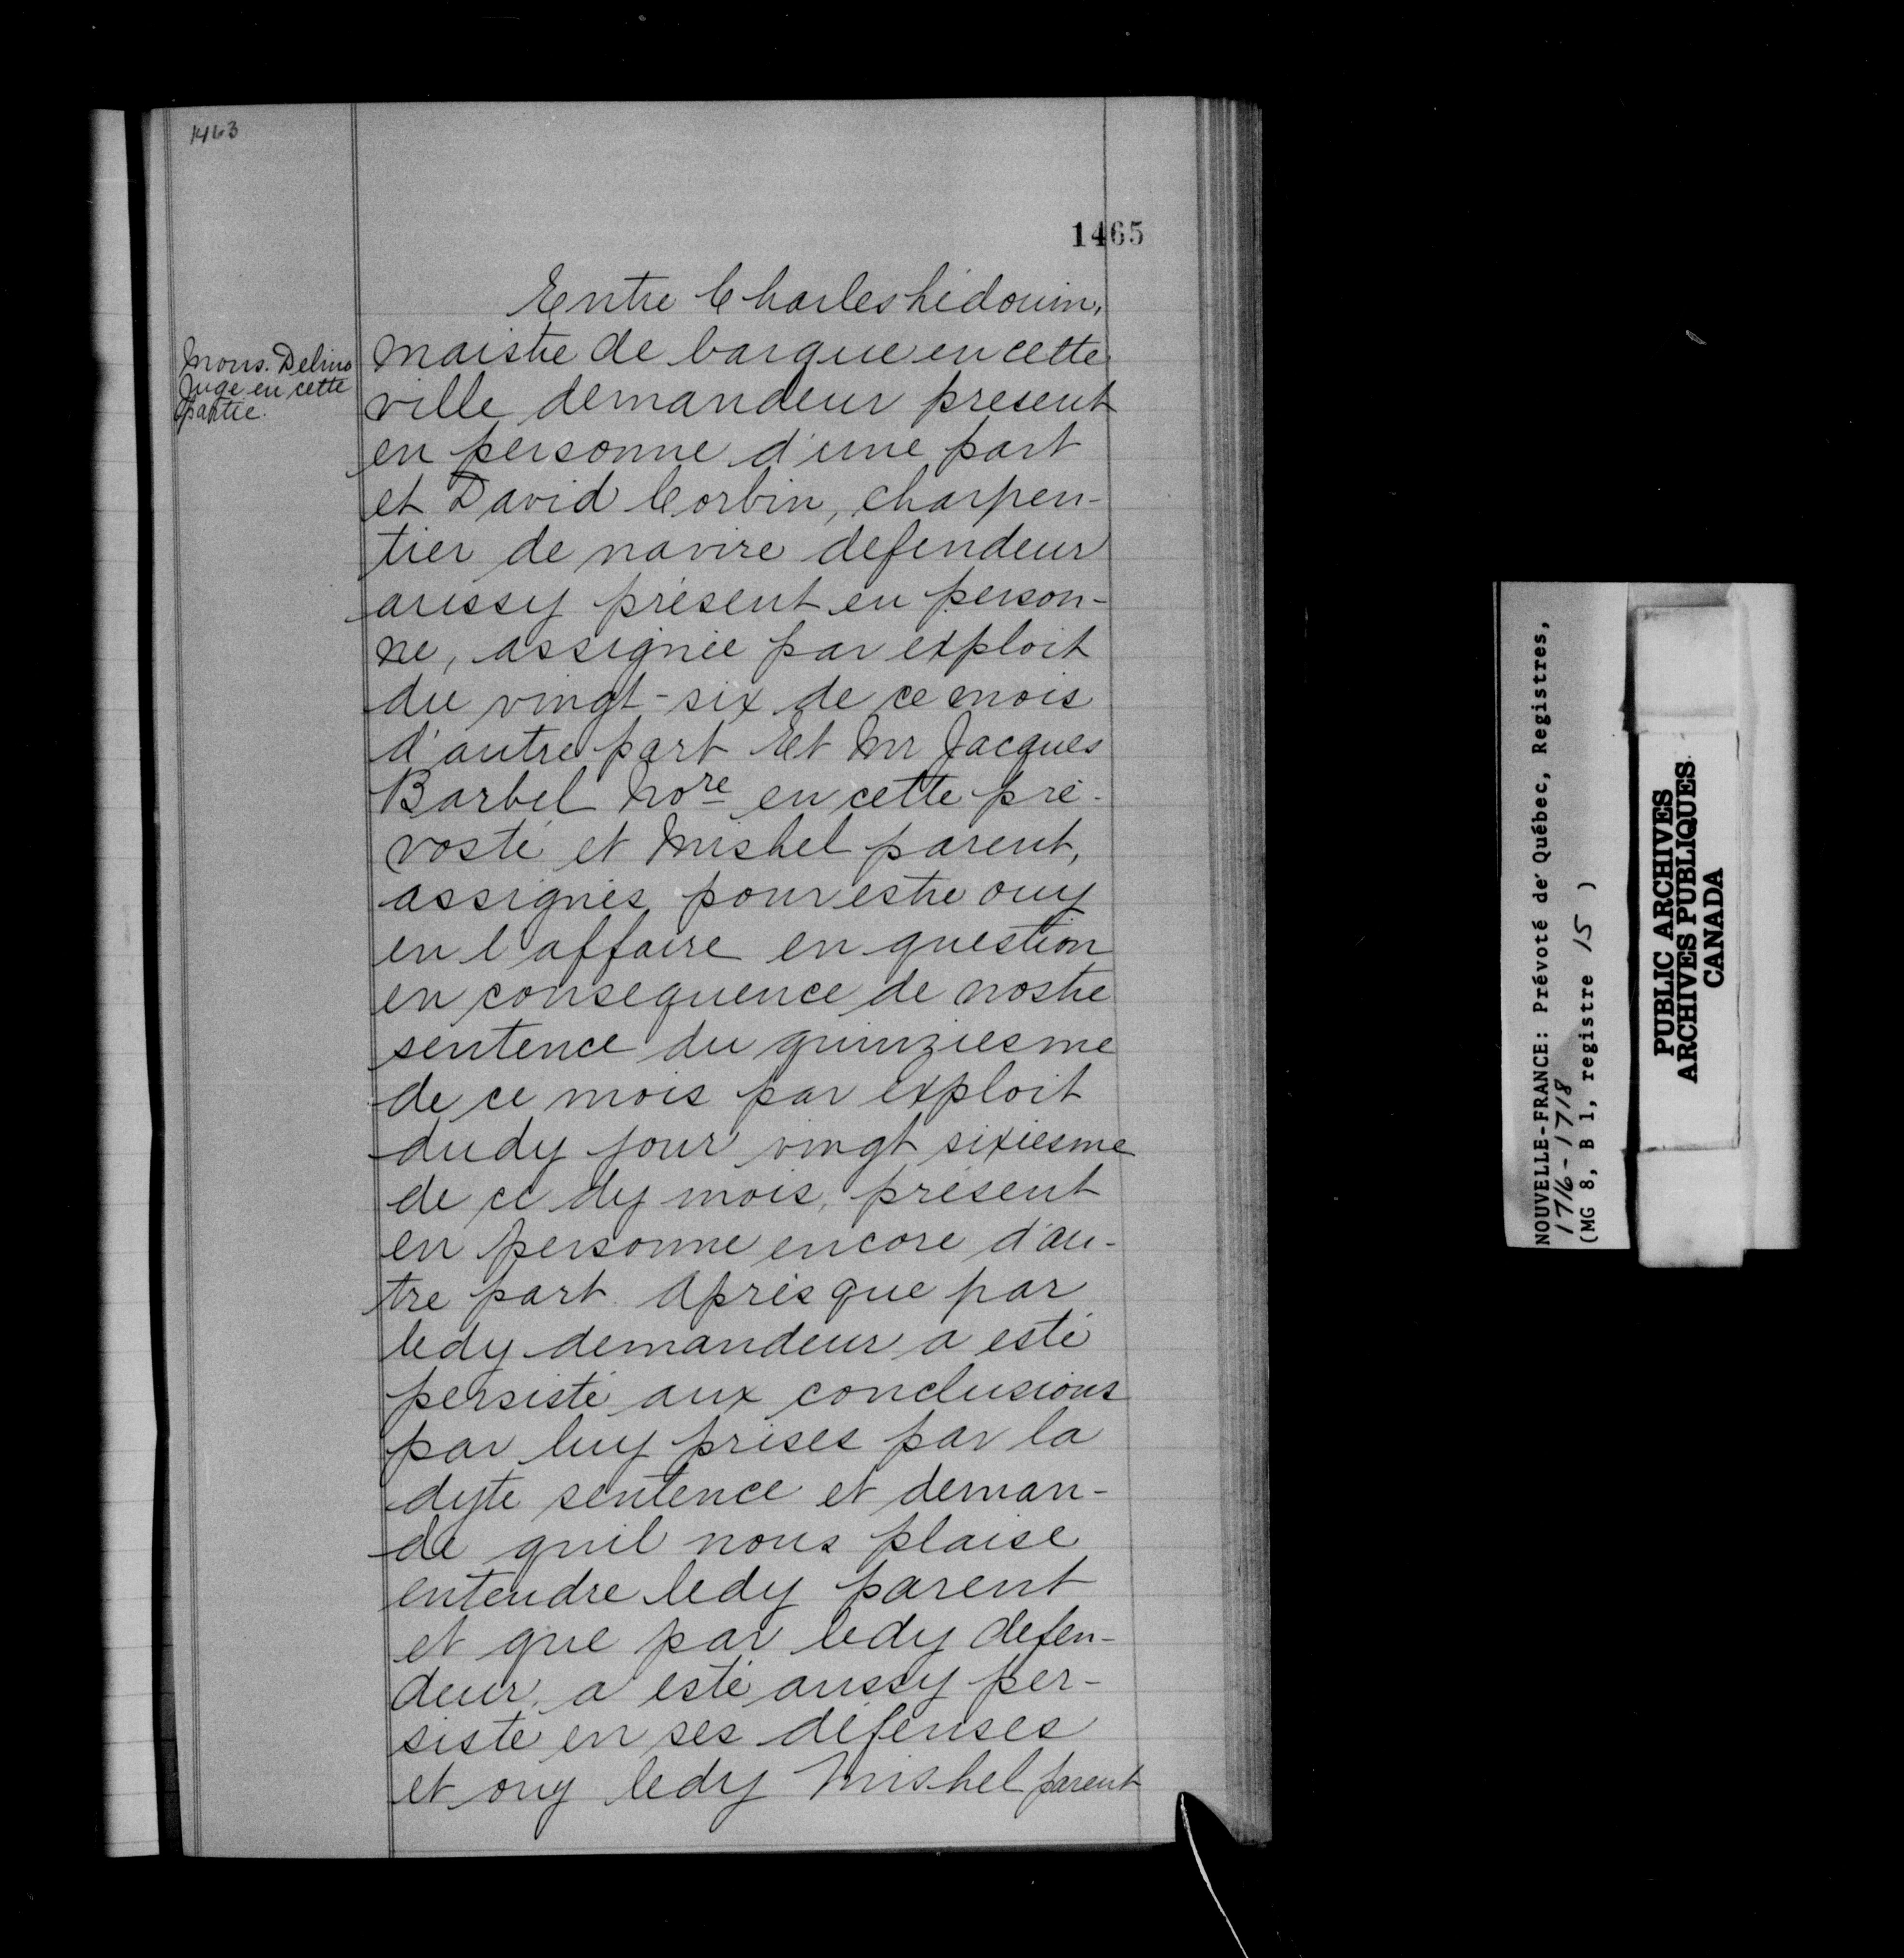 1463
1465
Mons. Delino
Juge en cette
partie.
Entre Charles hédouin,
maistre de barque en cette
ville demandeur present
en personne d'une part
et David Corbin, charpen-
tier de navire defendeur
aussy présent en person-
ne, assignée par exploit
du vingt-six de ce mois
d'autre part Et Mr Jacques
Barbel Nore en cette pré-
vosté et Mishel parent,
assignés pour estre ouy
en l'affaire en question
en consequence de nostre
sentence du quinziesme
de ce mois par exploit
dudy jour vingt sixiesme
de ce dy mois, présent
en personne encore d'au-
tre part. Après que par
ledy demandeur a esté
persisté aux conclusions
par luy prises par la
dyte sentence et deman-
de quil nous plaise
entendre ledy parent
et que par ledy defen-
deur, a esté aussy per-
sisté en ses défenses
et ouy ledy Mishel parent
NOUVELLE-FRANCE: Prévoté de Québec, Registres,
1716-1718
(MG 8, B 1, registre 15 )
PUBLIC ARCHIVES
ARCHIVES PUBLIQUES
CANADA